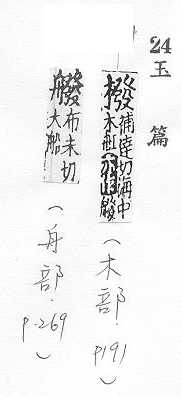 24 玉篇
橃 補達切海中
大船
(木部. p191)
布末切
大船
(舟部. p.269)